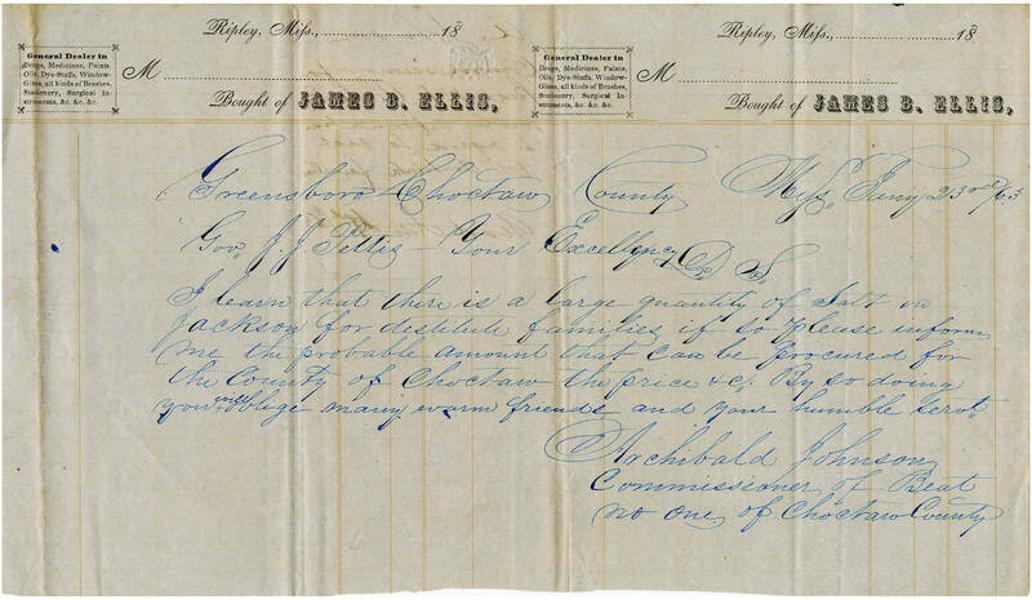 Ripley, Miss., 18
General Dealer in
Drugs, Medicines, Paints,
Oils, Dye-Stuffs, Window-
Glass, all kinds of Brushes,
Stationery, Surgical In-
struments, &c. &c. &c.
M
Bought of JAMES B. ELLIS,
Ripley, Miss., 18
General Dealer in
Drugs, Medicines, Paints,
Oils, Dye-Stuffs, Window-
Glass, all kinds of Brushes,
Stationery, Surgical In-
struments, &c. &c. &c.
M
Bought of JAMES B. ELLIS,
Greensboro Choctaw County Miss, Jany 23rd /63
Gov. J. J. Pettis Your Excellency D S
I learn that there is a large quantity of Salt in
Jackson for destitute families if so please inform
me the probable amount that can be procured for
the County of Choctaw the price &c. By so doing
you will oblige many warm friends and your humble servt
Archibald Johnson
Commissioner of Beat
no one of Choctaw County